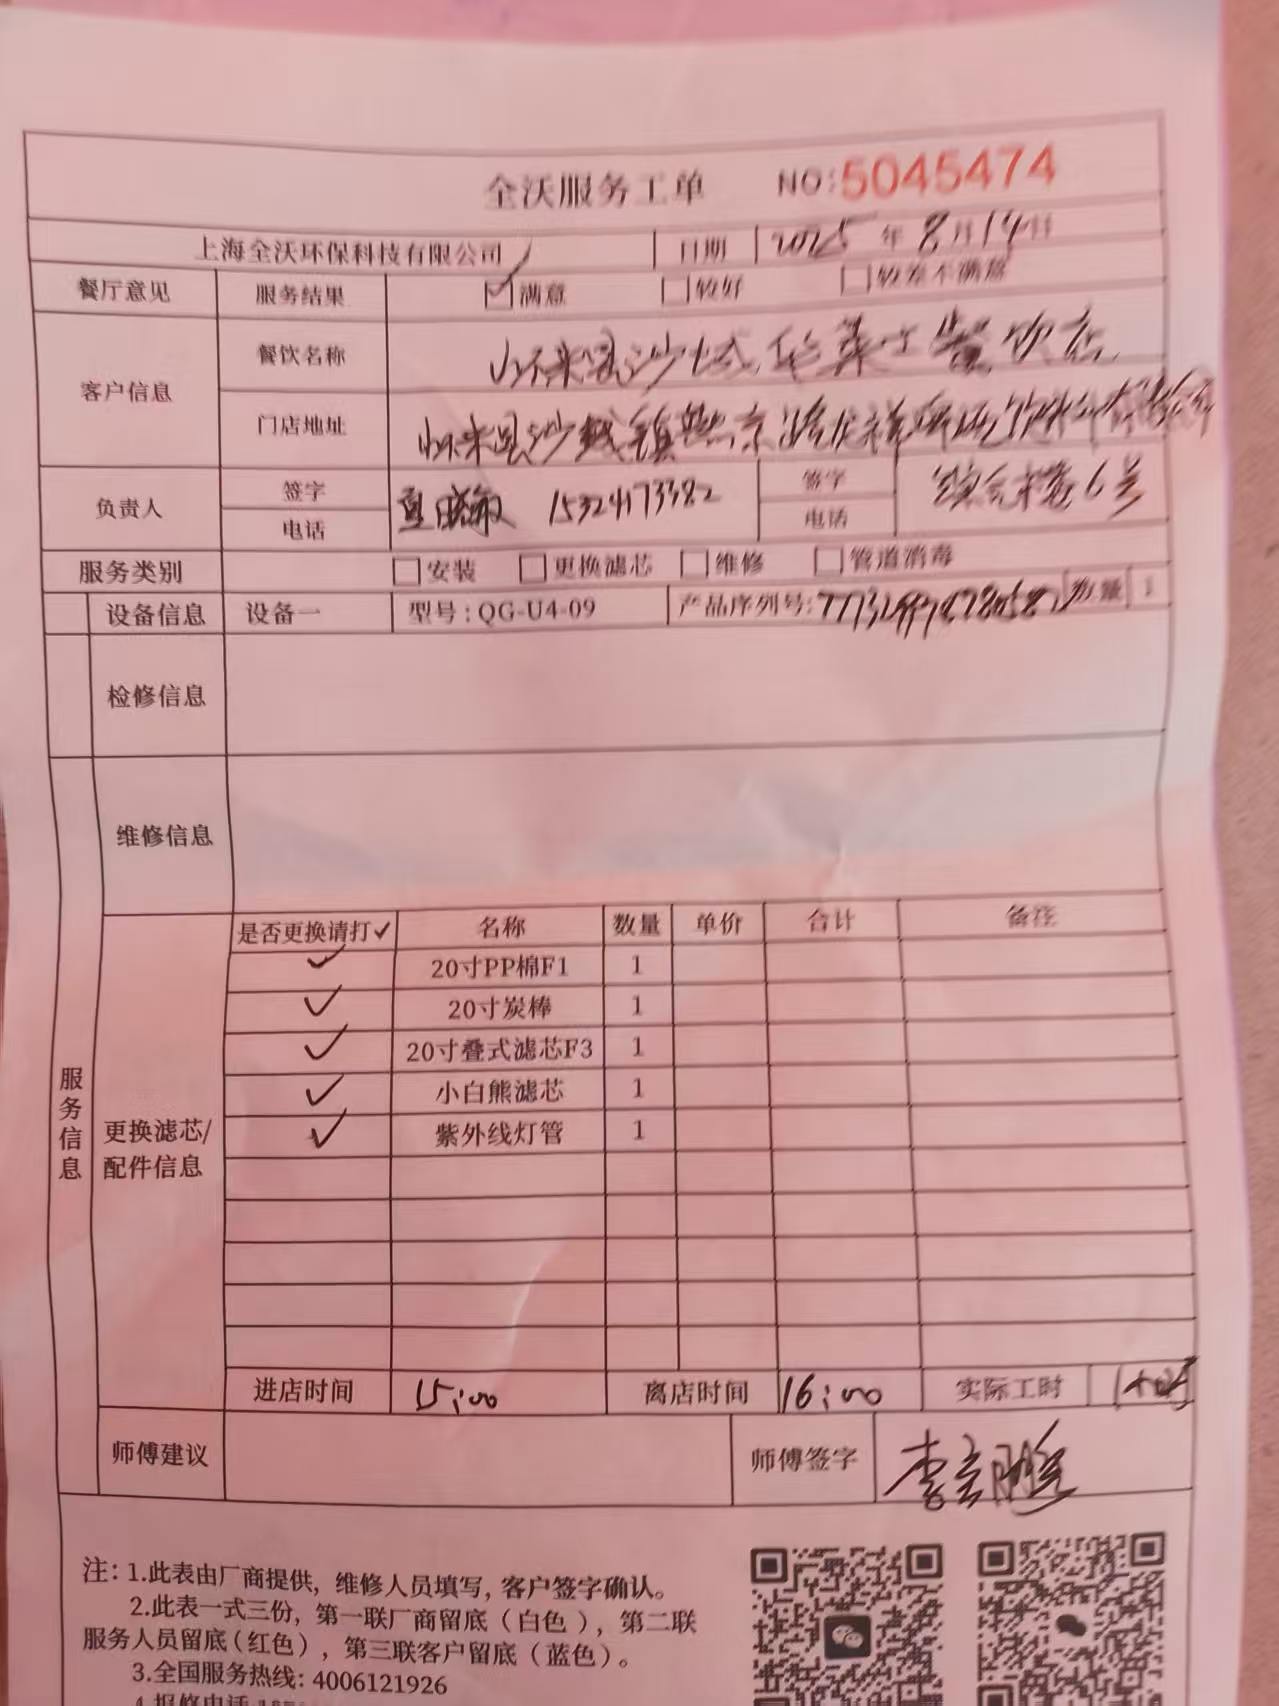 全沃服务工单 NO:5045474
上海全沃环保科技有限公司 日期 2025年8月14日
餐厅意见 服务结果 ☑满意 □较好 □较差不满意
客户信息 餐饮名称 怀来县沙城华莱士餐饮店
门店地址 怀来县沙城镇
综合楼6号
负责人 签字 签字
电话 15324173382 电话
服务类别 □安装 □更换滤芯 □维修 □管道消毒
设备信息 设备一 型号:QG-U4-09 产品序列号: 数量 1
检修信息
维修信息
服务信息
更换滤芯/配件信息
是否更换请打✓ 名称 数量 单价 合计 备注
✓ 20寸PP棉F1 1
✓ 20寸炭棒 1
✓ 20寸叠式滤芯F3 1
✓ 小白熊滤芯 1
✓ 紫外线灯管 1
进店时间 15:00 离店时间 16:00 实际工时
师傅建议 师傅签字
注:1.此表由厂商提供,维修人员填写,客户签字确认。
2.此表一式三份,第一联厂商留底(白色),第二联
服务人员留底(红色),第三联客户留底(蓝色)。
3.全国服务热线:4006121926
4.报修电话